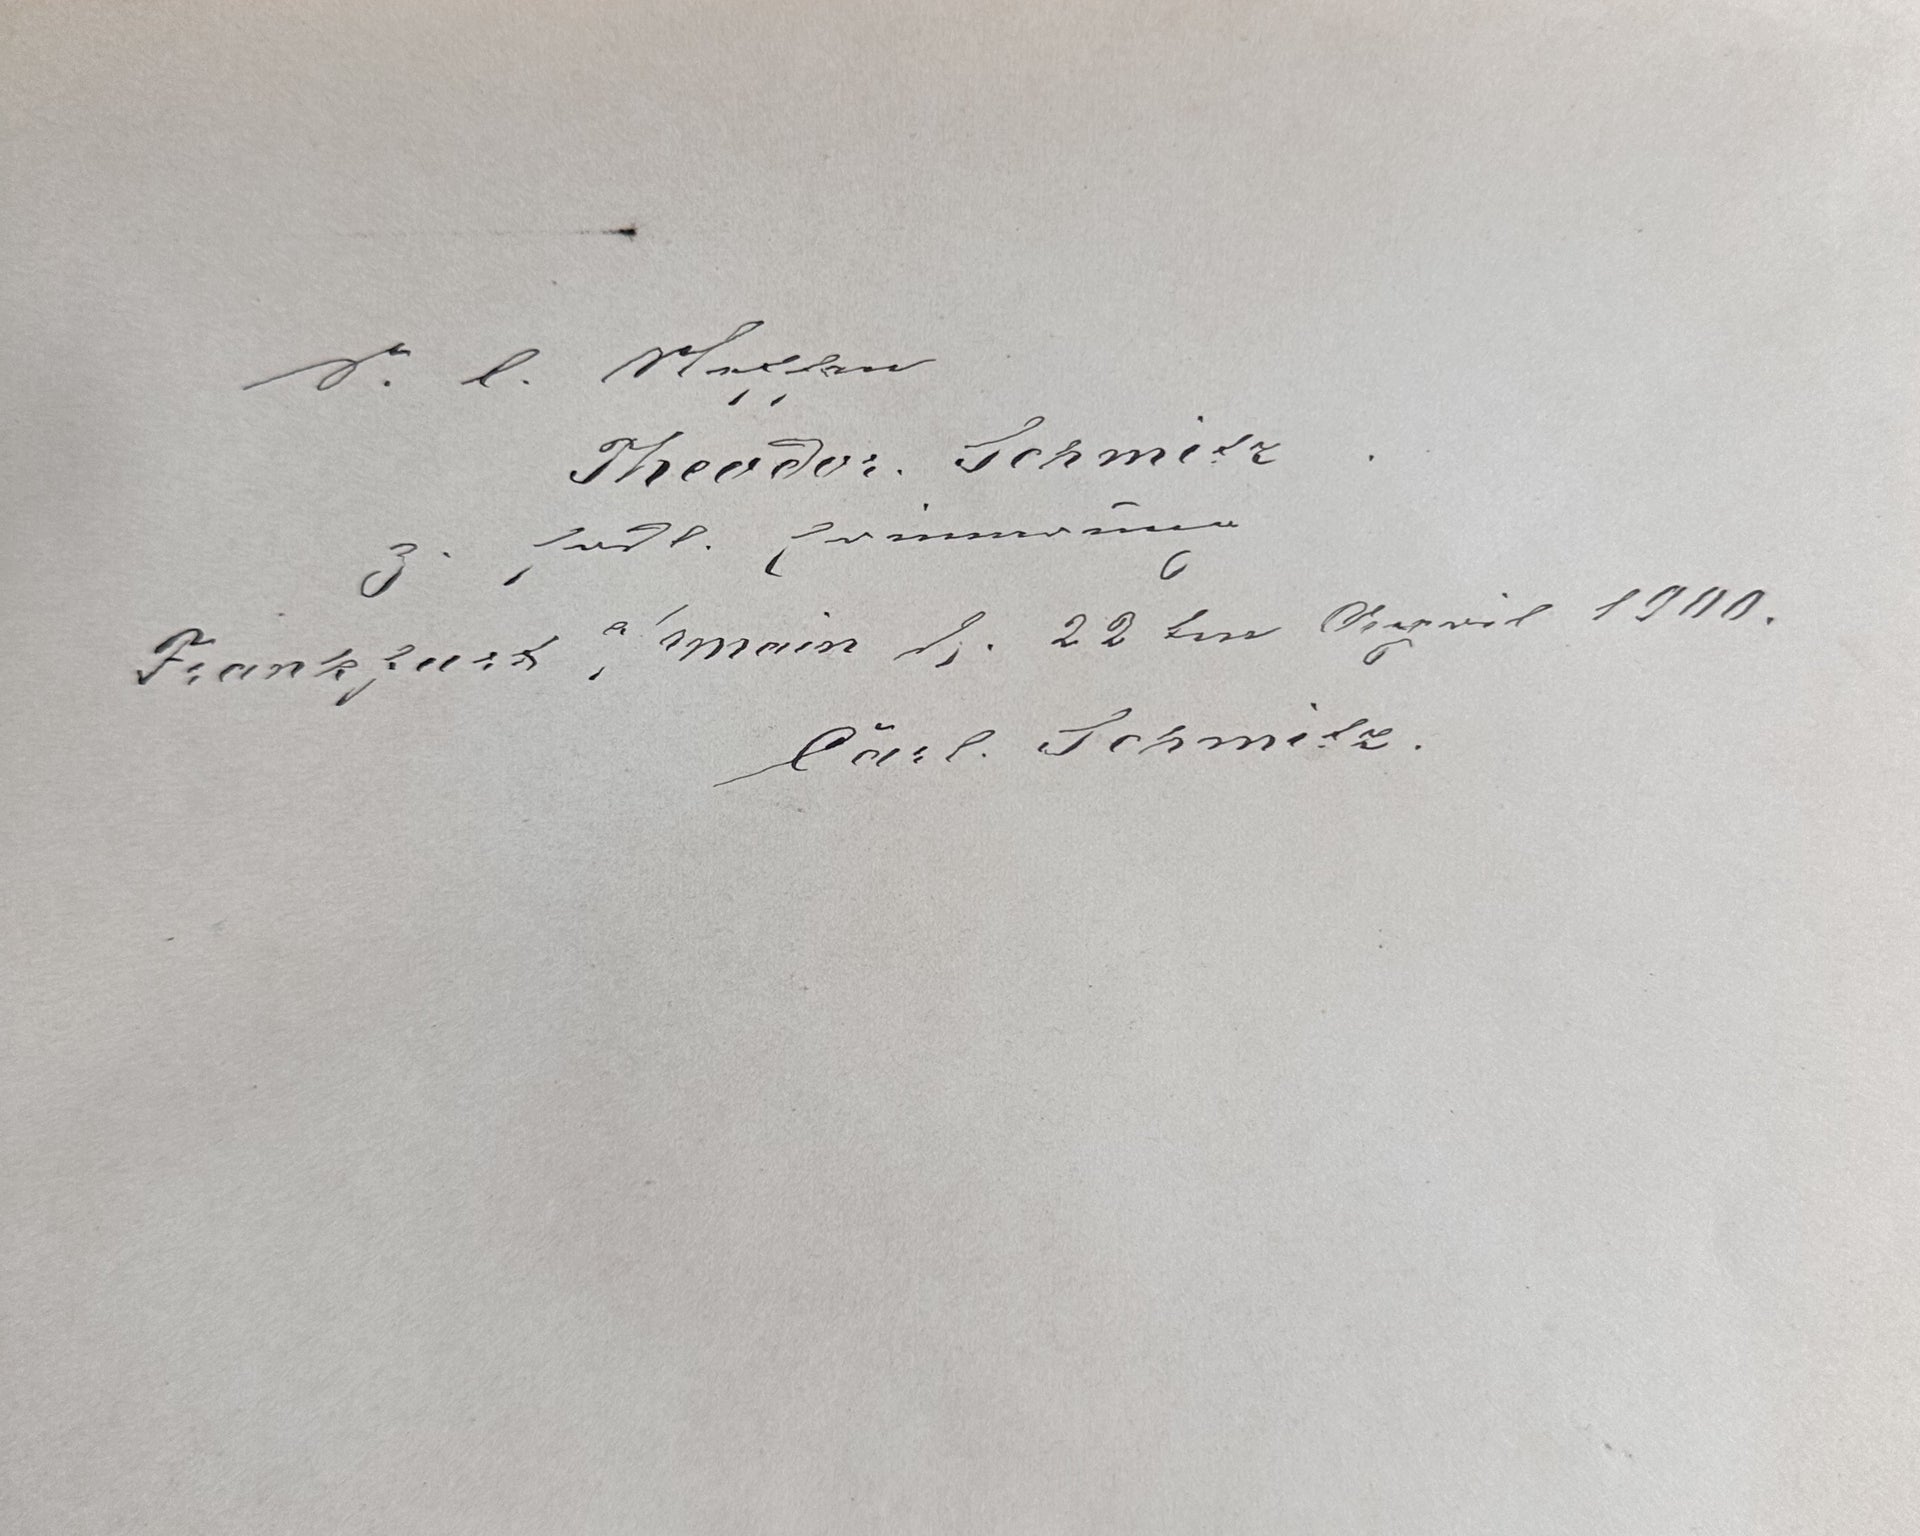 S. l. Neffen
Theodor. Schmitz
z. frdl. Erinnerung
Frankfurt a/Main d. 22ten April 1900.
Carl. Schmitz.